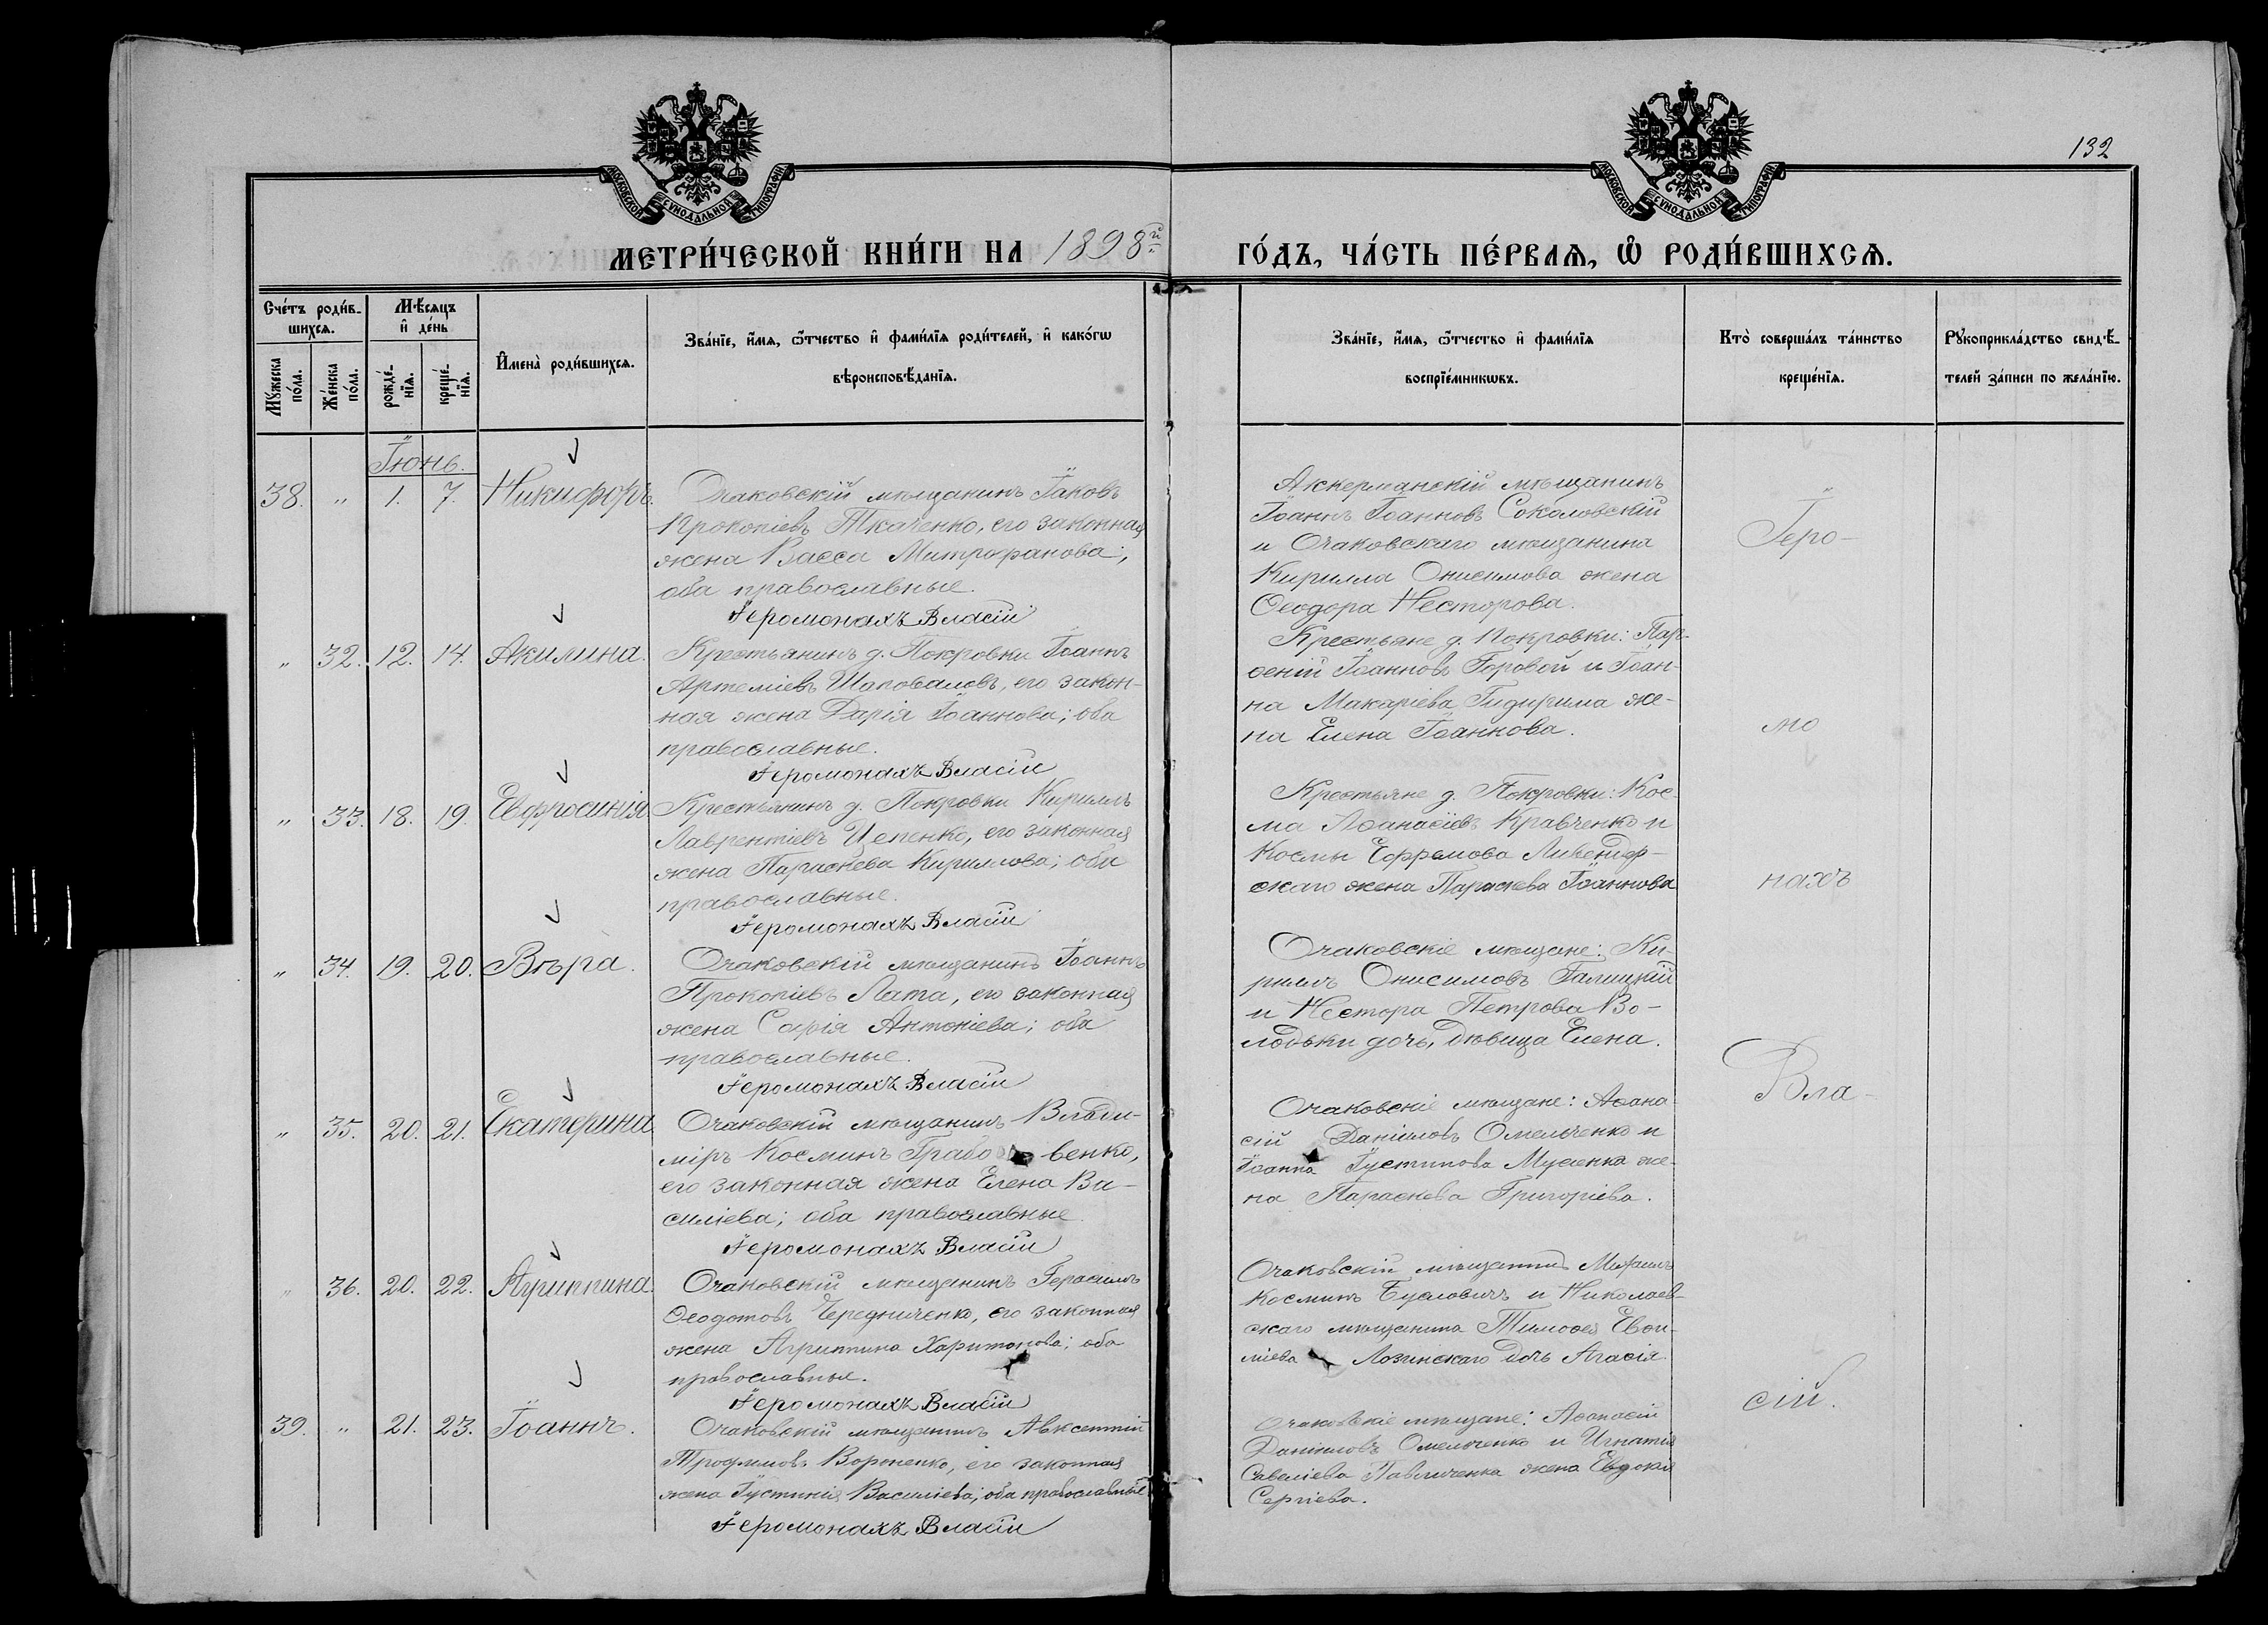 132
МОСКОВСКОЙ СѴНОДАЛЬНОЙ ТИПОГРАФІИ
МОСКОВСКОЙ СѴНОДАЛЬНОЙ ТИПОГРАФІИ
МЕТРИ́ЧЕСКОЙ КНИ́ГИ НА 1898й
ГО́ДЪ, ЧА́СТЬ ПЕ́РВАѦ, Ѡ҆ РОДИ́ВШИХСѦ.
Сче́тъ роди́в-
шихсѧ.
Мꙋ́жеска
по́ла.
Же́нска
по́ла.
Мѣ́сѧцъ
и҆ де́нь
рожде́-
нїѧ.
креще́-
нїѧ.
И҆мена̀ роди́вшихсѧ.
Зва́нїе, и҆́мѧ, ѻ҆́тчество и҆ фами́лїѧ роди́телей, и҆ како́гѡ
вѣроисповѣ́данїѧ.
Зва́нїе, и҆́мѧ, ѻ҆́тчество и҆ фами́лїѧ
воспрїе́мникѡвъ.
Кто̀ соверша́лъ та́инство
креще́нїѧ.
Рꙋкоприкла́дство свидѣ́-
телей за́писи по жела́нїю.
Іюнь.
38. " 1. 7. Никифоръ.
Очаковскій мѣщанинъ Іаковъ
Прокопіевъ Ткаченко, его законная
жена Васса Митрофанова;
оба православные.
Іеромонахъ Власій
Аккерманскій мѣщанинъ
Іоаннъ Іоанновъ Соколовскій
и Очаковскаго мѣщанина
Кирилла Онисимова жена
Ѳеодора Несторова.
Іеро-
" 32. 12. 14. Акилина.
Крестьянинъ д. Покровки Іоаннъ
Артеміевъ Шаповаловъ, его закон-
ная жена Дарія Іоаннова; оба
православные.
Іеромонахъ Власій
Крестьяне д. Покровки: Пар-
ѳеній Іоанновъ Горовой и Іоан-
на Макаріева Гидирима же-
на Елена Іоаннова.
мо
" 33. 18. 19. Евфросинія.
Крестьянинъ д. Покровки Кириллъ
Лаврентіевъ Цепенко, его законная
жена Параскева Кириллова; оба
православные.
Іеромонахъ Власій
Крестьяне д. Покровки: Кос-
ма Аѳанасіевъ Кравченко и
Космы Ефремова
скаго жена Параскева Іоаннова
нахъ
" 34. 19. 20. Вѣра.
Очаковскій мѣщанинъ Іоаннъ
Прокопіевъ Лата, его законная
жена Софія Антоніева; оба
православные.
Іеромонахъ Власій
Очаковскіе мѣщане: Ки-
риллъ Онисимовъ Галицкій
и Нестора Петрова Во-
лодьки дочь, дѣвица Елена.
Вла-
" 35. 20. 21. Екатерина.
Очаковскій мѣщанинъ Влади-
міръ Косминъ Грабо венко,
его законная жена Елена Ва-
силіева; оба православные
Іеромонахъ Власій
Очаковскіе мѣщане: Аѳана-
сій Даніиловъ Омельченко и
Іоанна Іустинова Мусіенка же-
на Параскева Григоріева.
" 36. 20. 22. Агриппина.
Очаковскій мѣщанинъ Герасимъ
Ѳеодотовъ Чередниченко, его законная
жена Агриппина Харитонова; оба
православные.
Іеромонахъ Власій
Очаковскій мѣщанинъ Михаилъ
Косминъ Буслович и Николаев-
скаго мѣщанина Тимоѳея Евѳи-
міева Лозинскаго дочь Агаѳія.
сій.
39. " 21. 23. Іоаннъ.
Очаковскій мѣщанинъ Авксентій
Трофимовъ Вороненко, его законная
жена Іустинія Василіева; оба православные
Іеромонахъ Власій
Очаковскіе мѣщане: Аѳанасій
Даніиловъ Омельченко и Игнатія
Савеліева Павличенка жена Евдокія
Сергіева.